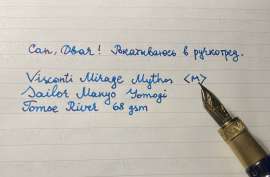 Сап, Двач! Вкатываюсь в ручкотред.
Visconti Mirage Mythos <M>
Sailor Manyo Yomogi
Tomoe River 68 gsm